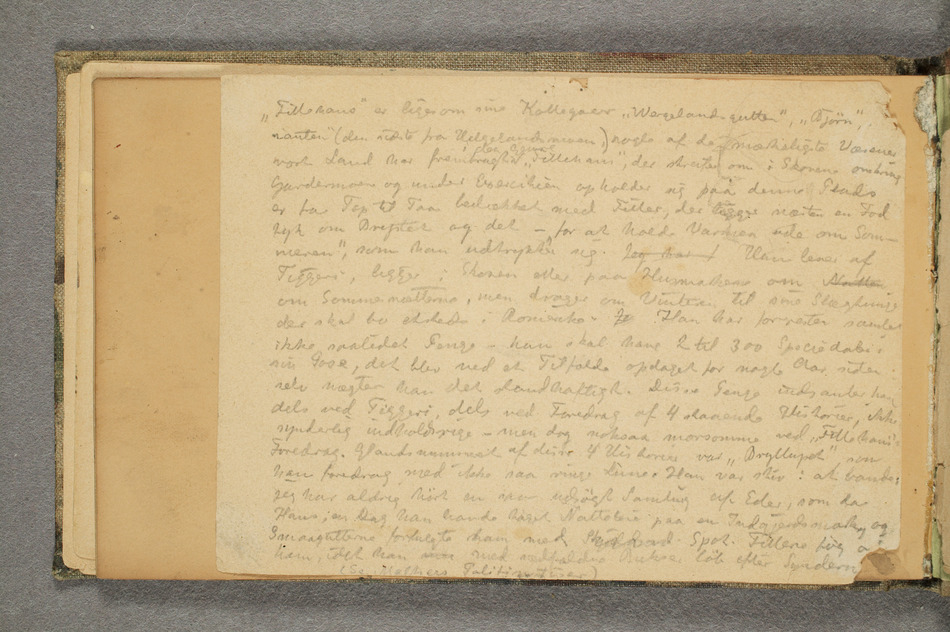 "Fillehans" er ligesom sine Kollegaer "Wergelandsgutten", "Björn
(den sidste fra Helgelandsmoen,) nogle af de mærkeligste Væsener
vort Land har frembragt. "Fillehans", der streifer om i Skovene omkring
Gardermoen og under Exercitien opholder sig paa denne Plads
er fra Top til Taa bedækket med Filler, der ligger næsten en Fod
tyk om Brystet og det – for at holde Varmen ude om Som-
meren", som han udtrykte sig. Han lever af
Tiggeri, ligger i Skoven eller paa Husmandens om
om Sommernætterne, men drager om Vinteren til sine Slægtninge
der skal bo etsteds i Romerike. Han har forresten samlet
ikke saalidet Penge – han skal have 2 til 300 Speciedaler i
sin Pose, det blev ved et Tilfælde opdaget for nogle Aar siden
selv nægter han det standhaftigt. Disse Penge indsamler han
dels ved Tiggeri, dels ved Foredrag af 4 staaende Historier, ikke
synderlig indholdsrige – men dog noksaa morsomme ved "Fillehans's
Foredrag. Glandsnummeret af disse 4 Historier var "Bryllupet" som
han foredrog med ikke saa ringe Lune. Han var stiv i at bande;
jeg har aldrig hört en mer udsögt Samling af Eder, som da
Hans, en Dag han havde taget Natteleie paa en og
Smaagutterne forfulgte ham med Spot. Fillerne fög af
ham, idet han med Bukser löb efter Synderne